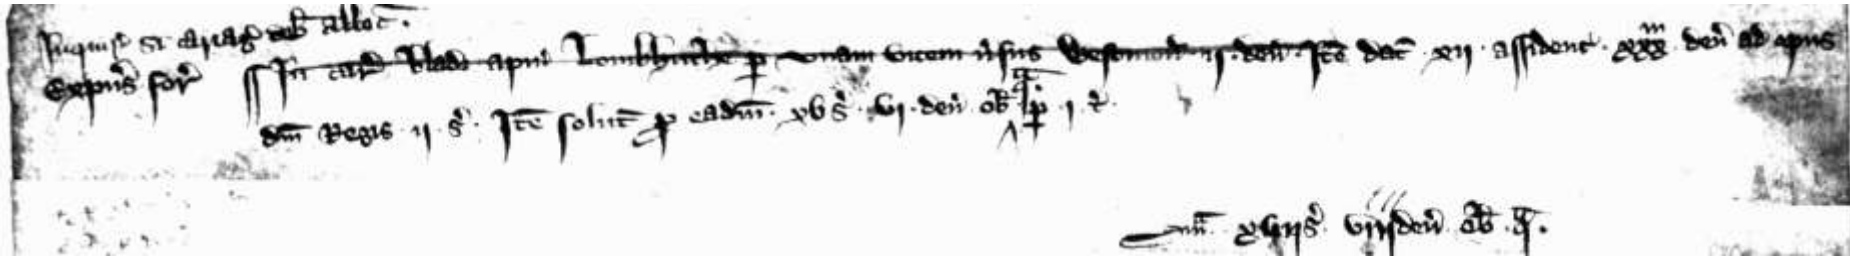 Inquir' si cariag' deb' alloc'.
Expens' for' In card' bladi apud Lombhuthe p' unam vicem v'sus Westmon' ii. den'. Ite' dat' xii. assident' xxx den' ad opus
dni' Regis ii s'. Ite' solut' p' eadm'. xv s'. vi. den' ob' q' p' i. t'.
Sm' xviis' viii den' ob' q'.